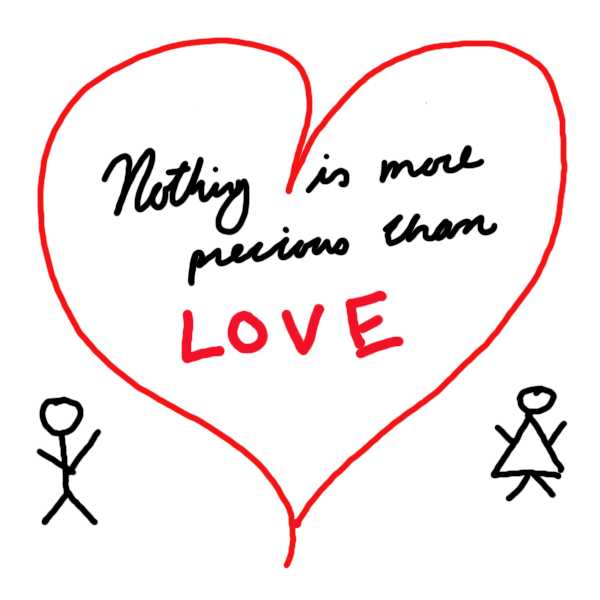 Nothing is more
precious than
LOVE